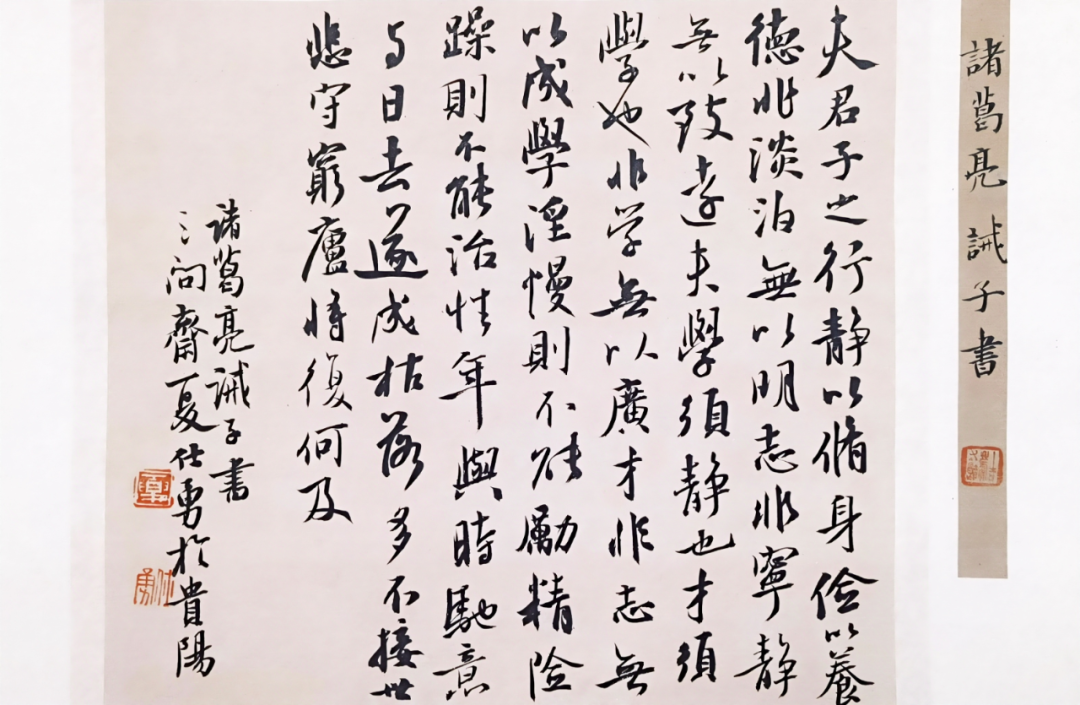 諸葛亮誡子書
夫君子之行静以脩身儉以養
德非淡泊無以明志非寧静
无以致遠夫學須静也才須
學也非学無以廣才非志無
以成學淫慢則不能勵精險
躁則不能治性年與時馳意
与日去遂成枯落多不接世
悲守窮廬將復何及
诸葛亮诫子書
三问齋夏仕勇於貴陽
仕勇